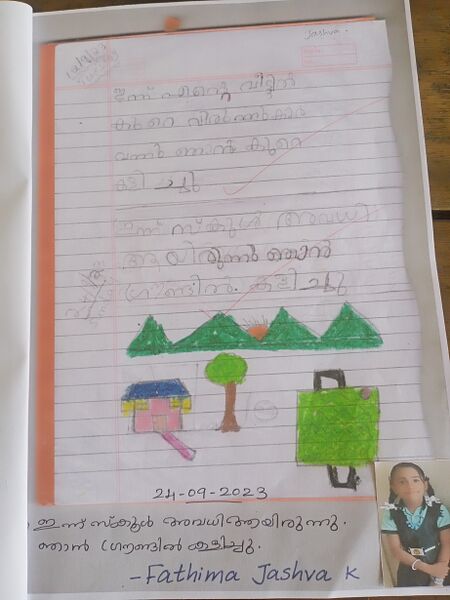 Jashva.
ഇന്ന് എന്റെ വീട്ടിൽ
കുറെ വിരുന്നുകാർ
വന്നു ഞാൻ കുറെ
കളിച്ചു
ഇന്ന് സ്കൂൾ അവധി
ആയിരുന്നു ഞാൻ
ഗ്രൗണ്ടിൽ കളിച്ചു
24-09-2023
ഇന്ന് സ്കൂൾ അവധിആയിരുന്നു.
ഞാൻ ഗ്രൗണ്ടിൽ കളിച്ചു.
-Fathima Jashva K